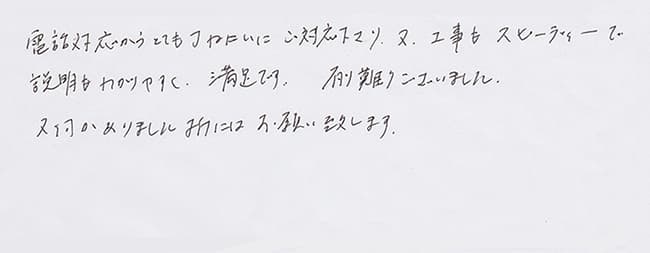 電話対応からとてもていねいにご対応下さり、又、工事もスピーディーで
説明もわかりやすく、満足です。 有り難うございました。
又何かありました折には お願い致します。